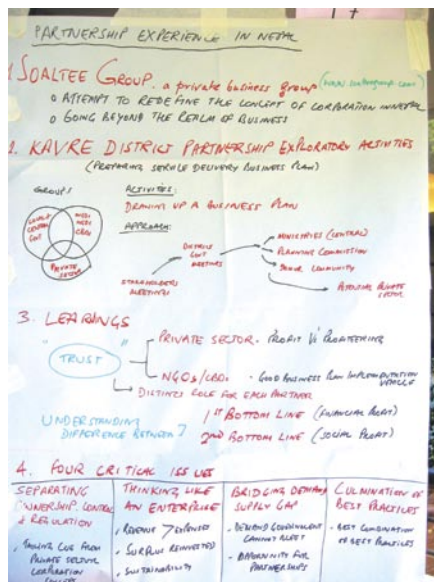 PARTNERSHIP EXPERIENCE IN NEPAL
1. SOALTEE GROUP. a private business group
o ATTEMPT TO REDEFINE THE CONCEPT OF CORPORATION IN NEPAL
o GOING BEYOND THE REALM OF BUSINESS
2. KAVRE DISTRICT PARTNERSHIP EXPLORATORY ACTIVITIES
(PREPARING SERVICE DELIVERY BUSINESS PLAN)
GROUPS
LOCAL &
CENTRAL
GOVT
NGOs/
CBOs
PRIVATE
SECTOR
ACTIVITIES:
DRAWING UP A BUSINESS PLAN
APPROACH:
STAKEHOLDERS
MEETINGS
DISTRICT
GOVT
MEETINGS
MINISTRIES (CENTRAL)
PLANNING COMMISSION
DONOR COMMUNITY
POTENTIAL PRIVATE
SECTOR
3. LEARINGS
" TRUST "
PRIVATE SECTOR - PROFIT Vs PROFITEERING
NGOs/CBOs - GOOD BUSINESS PLAN IMPLEMENTATION
VEHICLE
DISTINCT ROLE FOR EACH PARTNER
UNDERSTANDING
DIFFERENCE BETWEEN
1st BOTTOM LINE (FINANCIAL PROFIT)
2nd BOTTOM LINE (SOCIAL PROFIT)
4. FOUR CRITICAL ISSUES
SEPARATING
OWNERSHIP, CONTROL
& REGULATION
. TAKING CUE FROM
PRIVATE SECTOR
CORPORATION
THINKING LIKE
AN ENTERPRISE
. REVENUE > EXPENSES
. SURPLUS REINVESTED
. SUSTAINABILITY
BRIDGING DEMAND
SUPPLY GAP
. DEMAND GOVERNMENT
CANNOT MEET
. OPPORTUNITY FOR
PARTNERSHIPS
CULMINATION OF
BEST PRACTICES
. BEST COMBINATION
OF BEST PRACTICES